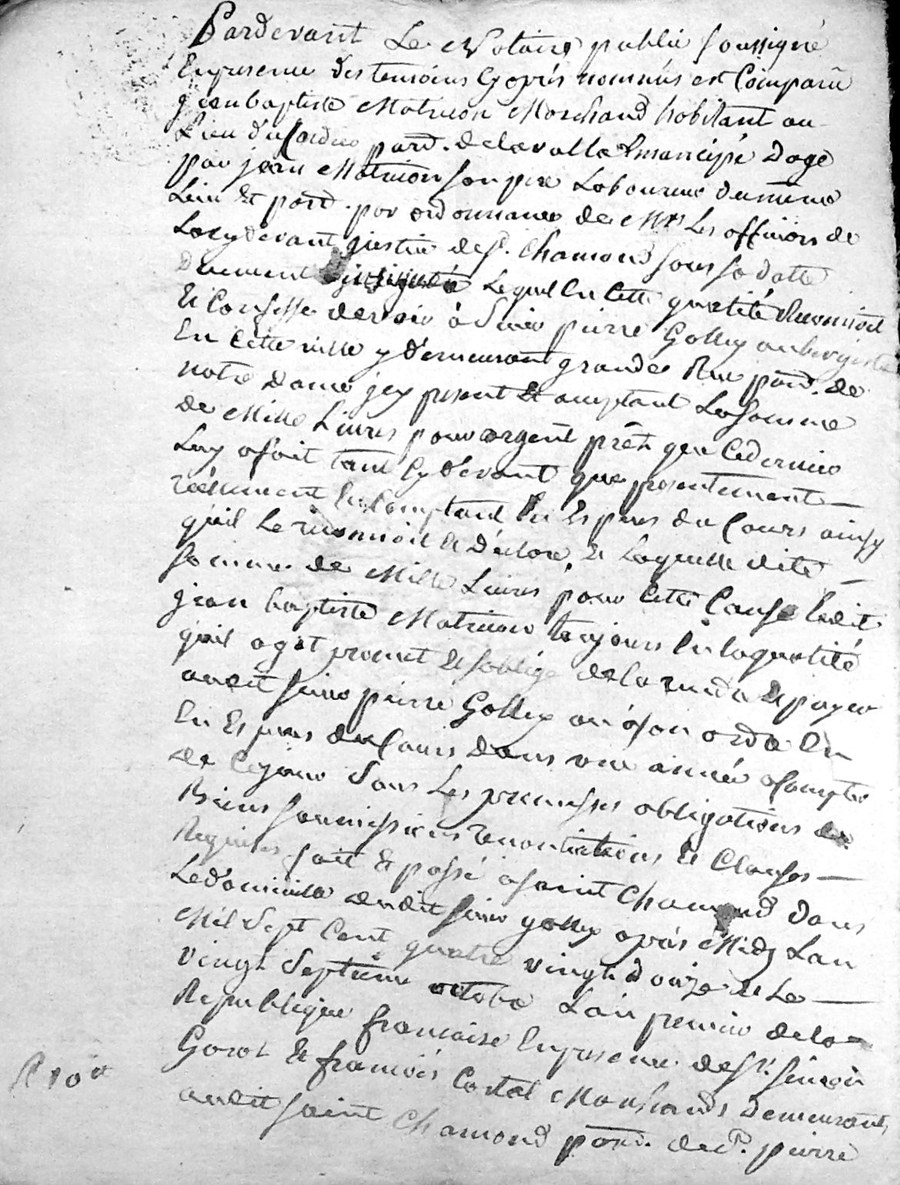 Pardevant Le Notaire public soussigné
En presence des temoins Cy aprés nommés est Comparu
jean baptiste Matricon Marchand habitant au
Lieu du parr. de lavalla Emancipé dage
par jean Matricon son pere Laboureur du même
Lieu Et parr. par ordonnance de Mrs Les officiers de
La cy devant justice de St. Chamond sous sa datte
Duement Lequel En Cette qualité Reconnoit
Et Confesse devoir à Sieur pierre Gallix aubergiste
En Cette ville y Demeurant grande Rue parr. de
notre dame jcy present Et acceptant La Somme
de Mille Livres pour argent prêté que Ce dernier
Luy a fait tant Cy devant que presentement
réellement En Comptant En Espèces du Cours ainsy
qu'il Le reconnoit Et Déclare, Et Laquelle dite
Somme de Mille Livres pour Cette Cause Ledit
jean baptiste Matricon toujours En la qualité
qu'il agit promet Et s'oblige de la rendre Et payer
audit sieur pierre Gallix ou a son ordre En
En Espèces du Cours dans une année a Compter
de Ce jour Sous Les promesses obligations de
Biens soumissions renontiations Et Clauses
Requises fait Et passé a saint Chamond dans
Le domicile dudit sieur gallix aprés Midy Lan
Mil Sept Cent quatre vingt douze Et Le
vingt Septieme octobre Lan premier de la
Republique francaise En presence de Sr. simeon
Et françois Costal Marchands demeurants
audit saint Chamond parr. de St. pierre